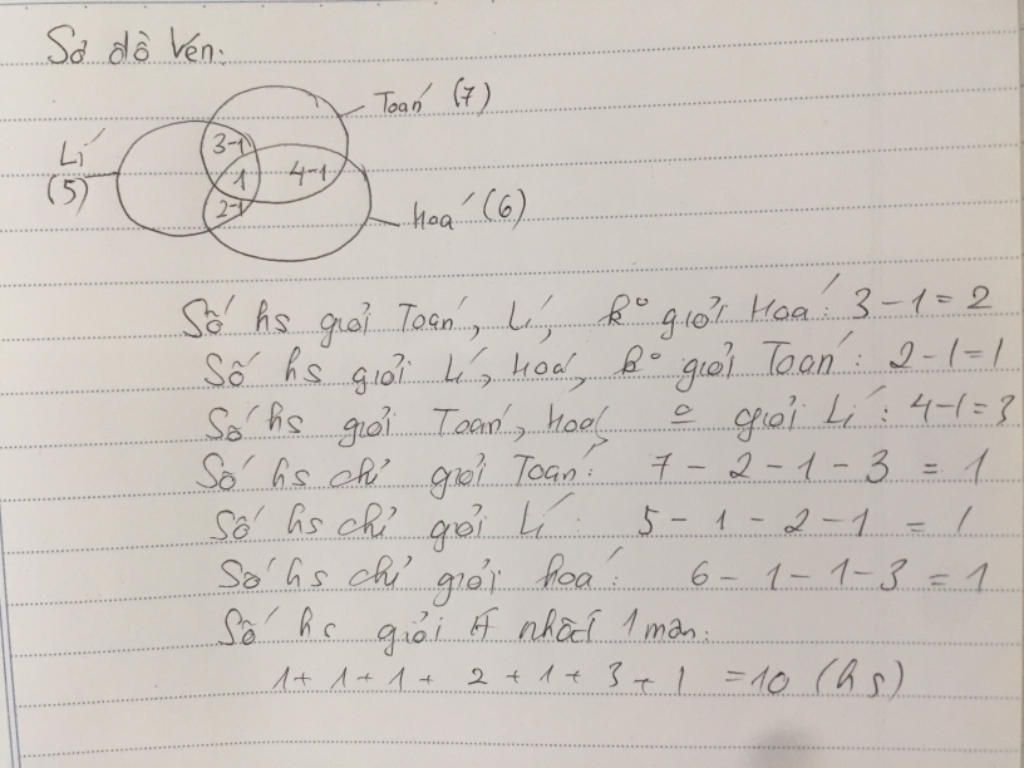 Sơ đồ Ven:
Toán (7)
Lí
(5)
3-1
1
4-1
2-1
Hoá (6)
Số hs giỏi Toán, Lí, k° giỏi Hoá: 3 - 1 = 2
Số hs giỏi Lí, Hoá, k° giỏi Toán: 2 - 1 = 1
Số hs giỏi Toán, Hoá, giỏi Lí: 4 - 1 = 3
Số hs chỉ giỏi Toán: 7 - 2 - 1 - 3 = 1
Số hs chỉ giỏi Lí: 5 - 1 - 2 - 1 = 1
Số hs chỉ giỏi hoá: 6 - 1 - 1 - 3 = 1
Số hs giỏi ít nhất 1 môn:
1 + 1 + 1 + 2 + 1 + 3 + 1 = 10 (hs)